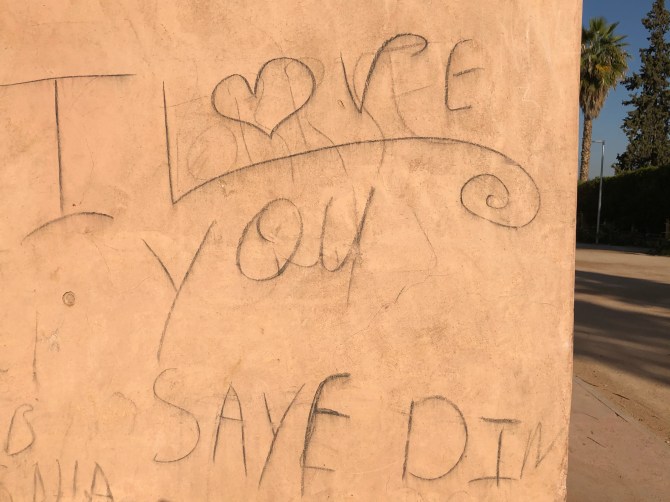 I L♥VE
YOU
SAYF DIN
B
NIA